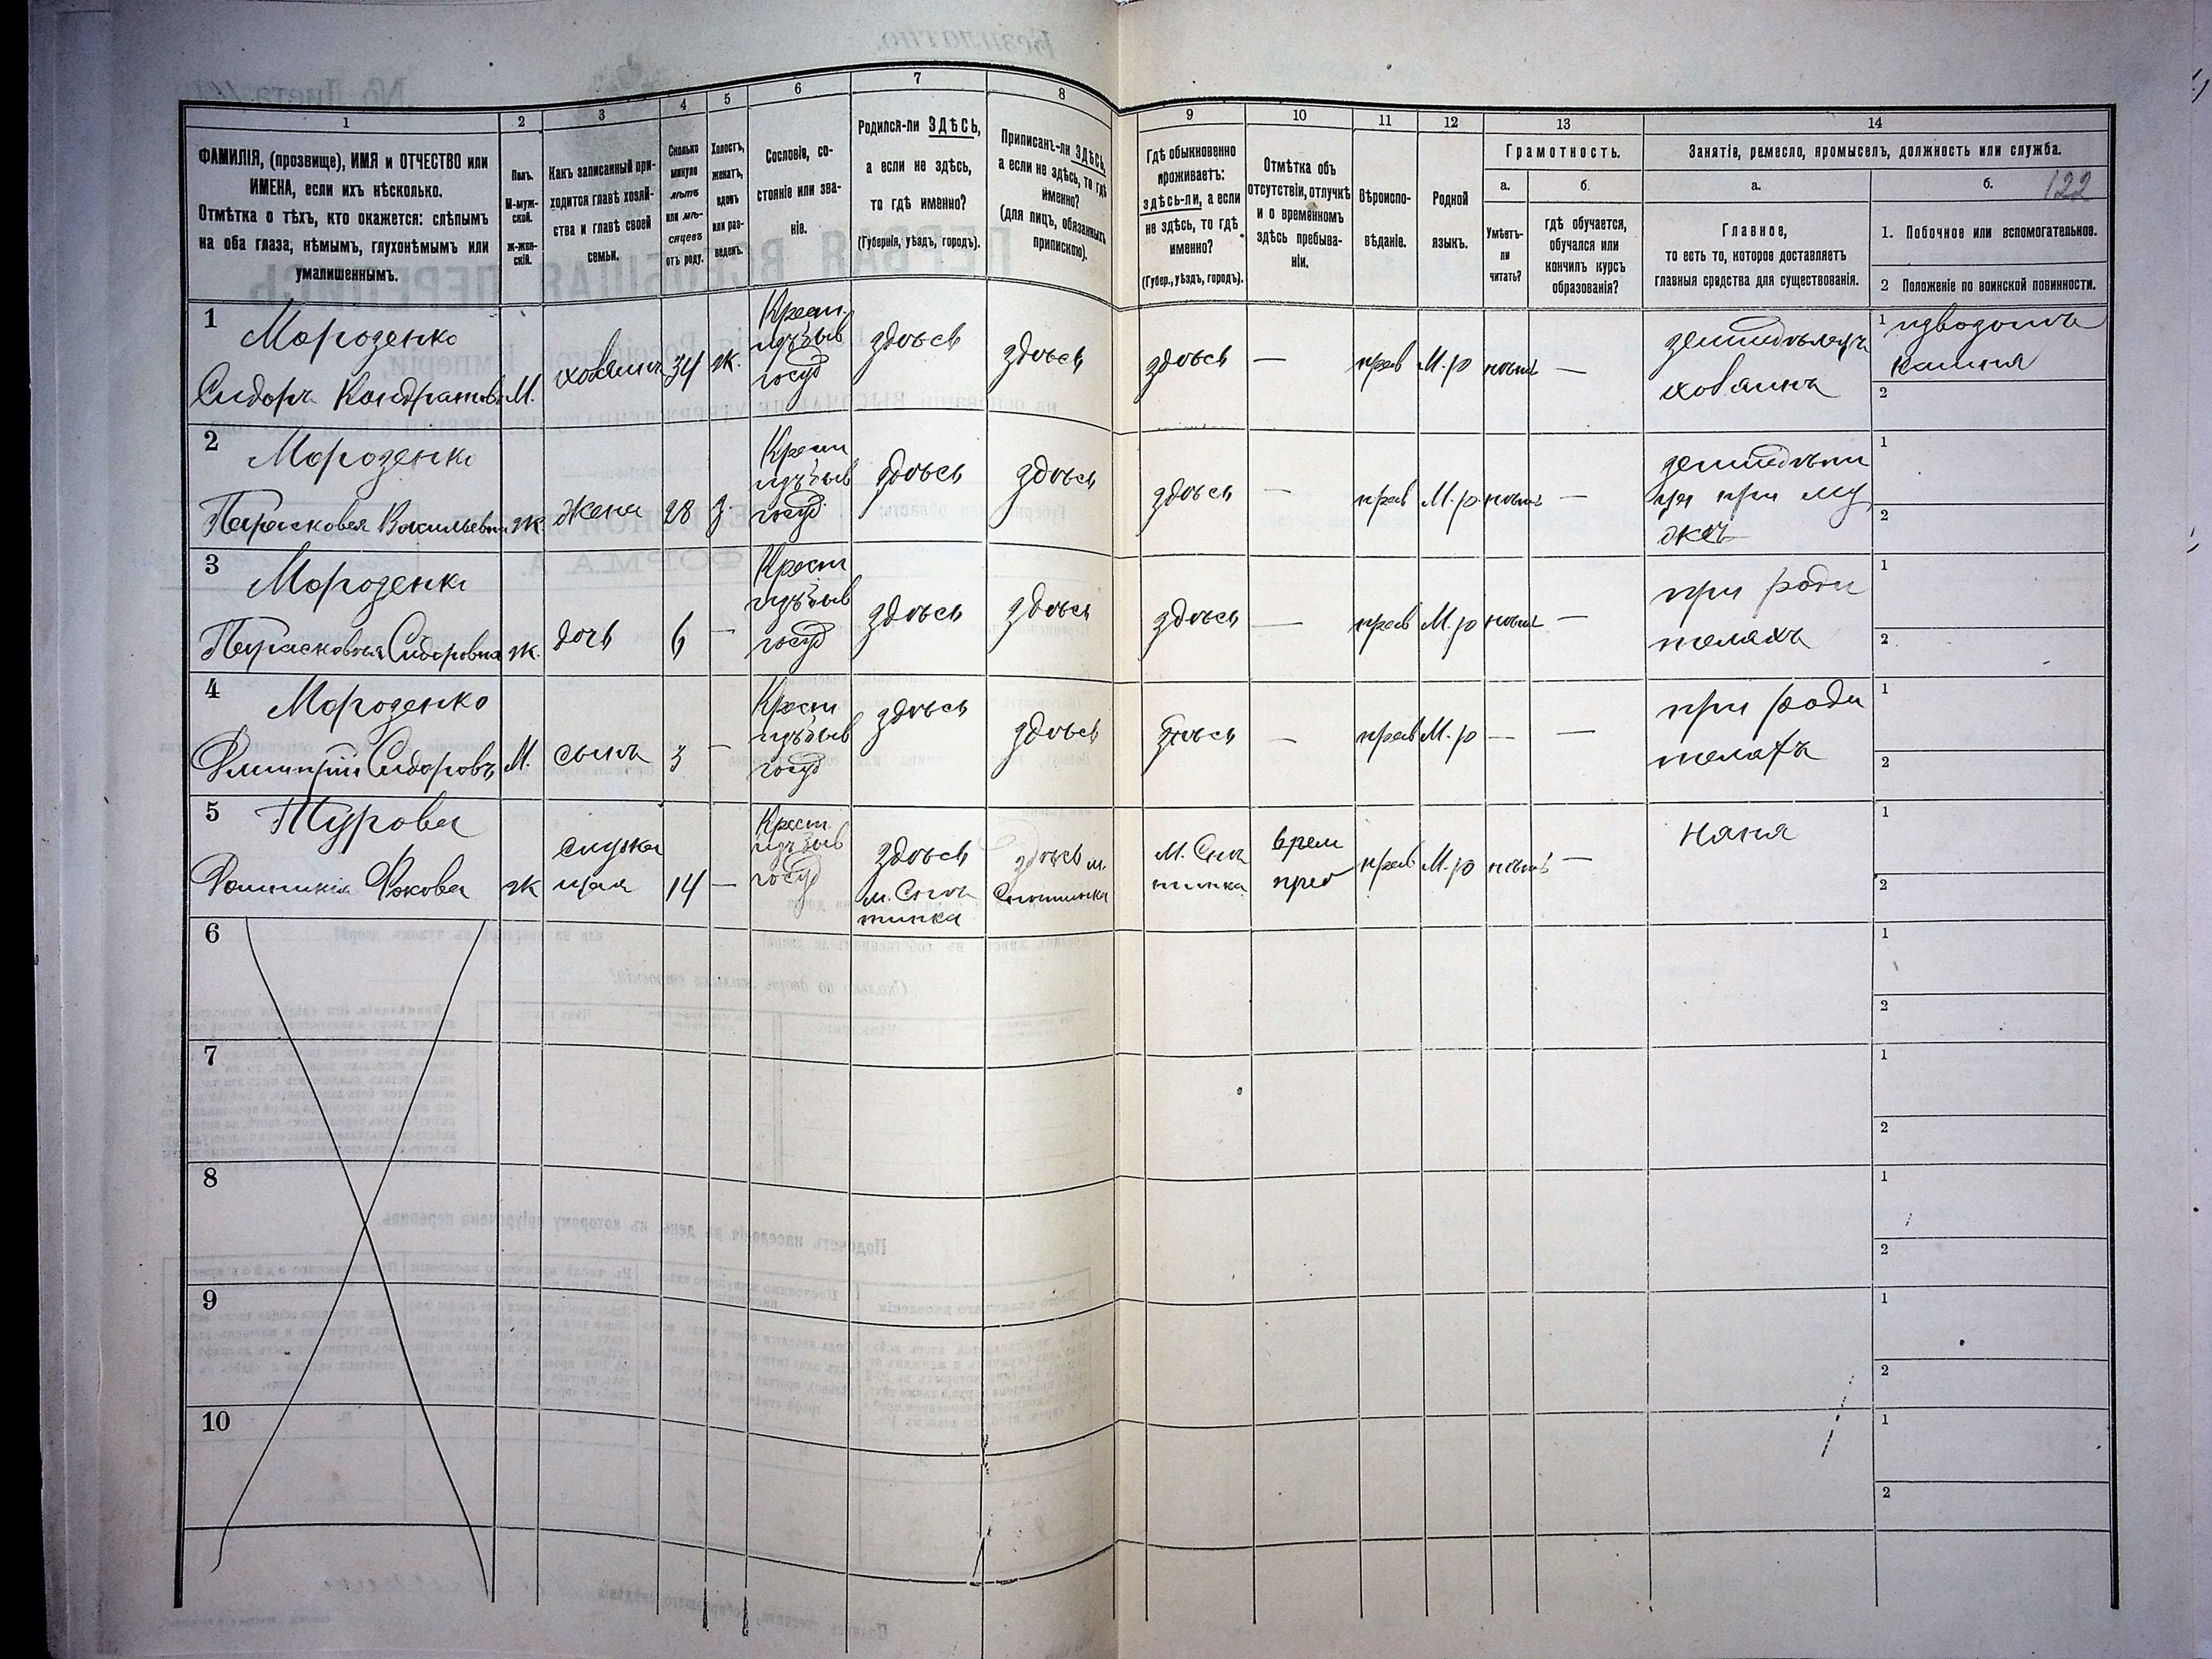 1
2
3
4
5
6
7
8
9
10
11
12
13
14
ФАМИЛІЯ, (прозвище), ИМЯ и ОТЧЕСТВО или
ИМЕНА, если ихъ нѣсколько.
Отмѣтка о тѣхъ, кто окажется: слѣпымъ
на оба глаза, нѣмымъ, глухонѣмымъ или
умалишеннымъ.
Полъ.
М-муж-
ской.
ж-жен-
скій.
Какъ записанный при-
ходится главѣ хозяй-
ства и главѣ своей
семьи.
Сколько
минуло
лѣтъ
или мѣ-
сяцевъ
отъ роду.
Холостъ,
женатъ,
вдовъ
или раз-
веденъ.
Сословіе, со-
стояніе или зва-
ніе.
Родился-ли ЗДѢСЬ,
а если не здѣсь,
то гдѣ именно?
(Губернія, уѣздъ, городъ).
Приписанъ-ли ЗДѢСЬ,
а если не здѣсь, то гдѣ
именно?
(для лицъ, обязанныхъ
припискою).
Гдѣ обыкновенно
проживаетъ:
здѣсь-ли, а если
не здѣсь, то гдѣ
именно?
(Губер., уѣздъ, городъ).
Отмѣтка объ
отсутствіи, отлучкѣ
и о временномъ
здѣсь пребыва-
ніи.
Вѣроиспо-
вѣданіе.
Родной
языкъ.
Грамотность.
а.
Умѣетъ-
ли
читать?
б.
гдѣ обучается,
обучался или
кончилъ курсъ
образованія?
Занятіе, ремесло, промыселъ, должность или служба.
а.
Главное,
то есть то, которое доставляетъ
главныя средства для существованія.
б. 122
1. Побочное или вспомогательное.
2 Положеніе по воинской повинности.
1
Морозенко
Сидоръ Кондратовъ
М.
хозяинъ
34
ж.
Крест.
изъ быв
госуд
здѣсь
здѣсь
здѣсь
—
прав
М.р
нѣтъ
—
хозяинъ
1 изводомъ
камня
2
2
Морозенко
Парасковья Васильевна
ж.
Жена
28
з.
Крест
изъ быв
госуд
здѣсь
здѣсь
здѣсь
—
прав
М.р
нѣтъ
—
ца при му
жѣ
1
2
3
Морозенко
Парасковья Сидоровна
ж.
дочь
6
—
Крест
изъ быв
госуд
здѣсь
здѣсь
здѣсь
—
прав
М.р
нѣтъ
—
при роди
теляхъ
1
2
4
Морозенко
Дмитрій Сидоровъ
М.
сынъ
3
—
Крест
изъ быв
госуд
здѣсь
здѣсь
здѣсь
—
прав
М.р
—
—
при роди
теляхъ
1
2
5
Турова
Домникія Фокова
ж
служа
щая
14
—
Крест.
изъ быв
госуд
здѣсь
м. Снѣ
тинка
здѣсь м.
Снѣтинка
М. Снѣ
тинка
врем
преб
прав
М.р
нѣтъ
—
няня
1
2
6
1
2
7
1
2
8
1
2
9
1
2
10
1
2